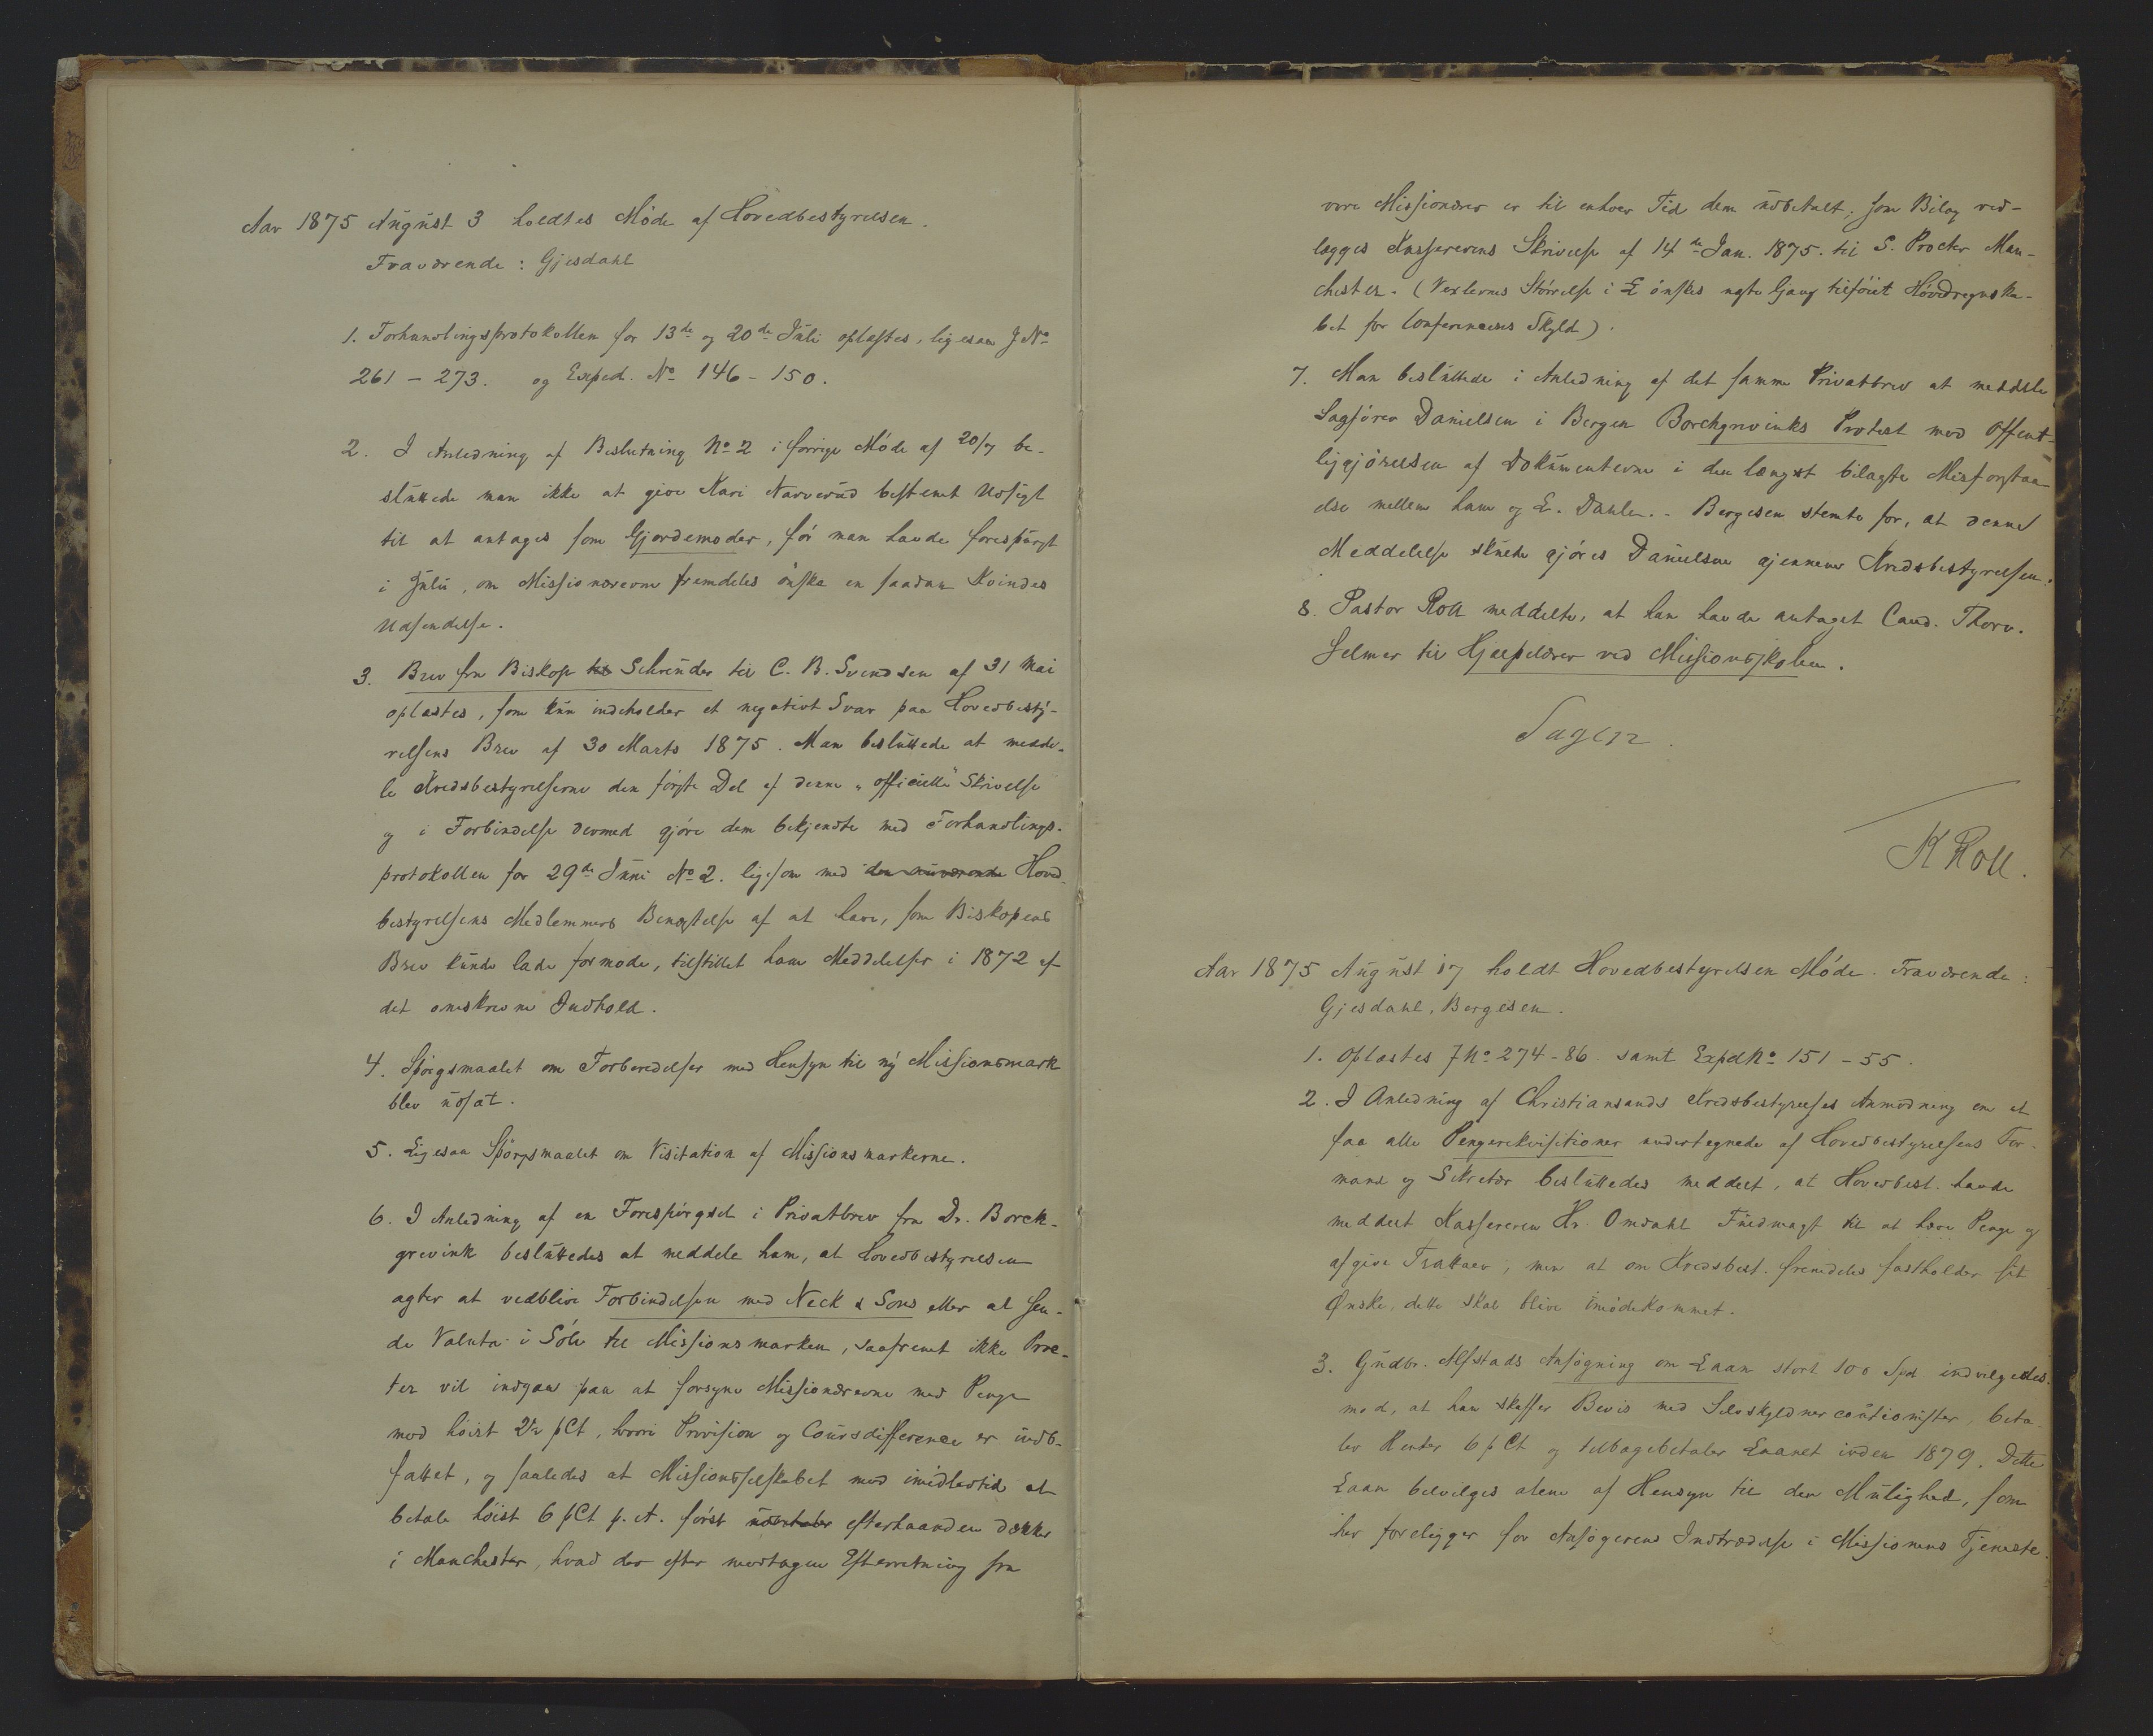 Aar 1875 August 3 holdtes Møde af Hovedbestyrelsen.
Fraværende: Gjesdahl
1. Forhandlingsprotokollen for 13de og 20de Juli oplæstes, ligesaa J No
261 - 273. og Exped. No 146 - 150.
2. I Anledning af Beslutning No 2 i forrige Møde af 20/7 be-
sluttede man ikke at give Kari Narverud bestemt Udsigt
til at antages som Gjordemoder, før man havde forespurgt
i Zulu, om Missionærerne fremdeles ønske en saadan Kvindes
Udsendelse.
3. Brev fra Biskop til Schreuder til C. B. Svendsen af 31 Mai
oplæstes, som kun indeholder et negativt Svar paa Hovedbesty-
relsens Brev af 30 Marts 1875. Man besluttede at medde-
le Kredsbestyrelserne den første Del af denne "officielle" Skrivelse
og i Forbindelse dermed gjøre dem bekjendte med Forhandlings-
protokollen for 29de Juni No 2. ligesom med den nuværende Hoved-
bestyrelsens Medlemmers Benægtelse af at have, som Biskopens
Brev kunde lade formode, tilstillet ham Meddelelser i 1872 af
det omskrevne Indhold.
4. Spørgsmaalet om Forberedelser med Hensyn til ny Missionsmark
blev udsat.
5. Ligesaa Spørgsmaalet om Visitation af Missionsmarkerne.
6. I Anledning af en Forespørgsel i Privatbrev fra Dr. Borch-
grevink besluttedes at meddele ham, at Hovedbestyrelsen
agter at vedblive Forbindelsen med Neck & Sons eller at sen-
de Valuta i Sølv til Missionsmarken, saafremt ikke Proc-
ter vil indgaa paa at forsyne Missionærerne med Penge
mod høist 2½ pCt, hvori Provision og Coursdifference er indb-
fattet, og saaledes at Missionsselskabet med imidlertid at
betale høist 6 pCt p. A. først udbetaler efterhaanden dækker
i Manchester, hvad der efter modtagen Efterretning fra
vore Missionærer er til enhver Tid dem udbetalt; som Bilag ved-
lægges Kassererens Skrivelse af 14de Jan. 1875 til S. Procter Man-
chester. (Vexlernes Størrelse i £ ønskes næste Gang tilføiet Hovedregnska-
bet for Conferencens Skyld).
7. Man besluttede i Anledning af det samme Privatbrev at meddele
Sagfører Danielsen i Bergen Borchgrevinks Protest mod Offent-
liggjørelsen af Dokumenterne i den længst bilagte Misforstaa-
else mellem ham og L. Dahle. - Borgesen stemte for, at denne
Meddelelse skulde gjøres Danielsen gjennem Kredsbestyrelsen.
8. Pastor Roll meddelte, at han havde antaget Cand. Thorv.
Selmer til Hjælpelærer ved Missionsskolen.
Sagen.
K Roll.
Aar 1875 August 17 holdt Hovedbestyrelsen Møde. Fraværende:
Gjesdahl, Borgesen.
1. Oplæstes J No 274 - 86. samt Exped No 151 - 55.
2. I Anledning af Christiansands Kredsbestyrelses Anmodning om at
faa alle Pengerekvisitioner undertegnede af Hovedbestyrelsens For-
mand og Sekretær besluttedes meddelt, at Hovedbest. havde
meddelt Kassereren Hr. Omdahl Fuldmagt til at hæve Penge og
afgive Trakaer, men at om Kredsbest. fremdeles fastholder sit
Ønske, dette skal blive imødekommet.
3. Gudbr. Alfstads Ansøgning om Laan stort 100 Spd. indvilgedes
mod, at han skaffer Bevis med Selvskyldnercautionister, beta-
ler Renter 6 pCt og tilbagebetaler Laanet inden 1879. Dette
Laan bevilges alene af Hensyn til den Mulighed, som
her foreligger for Ansøgerens Indtrædelse i Missionens Tjeneste.